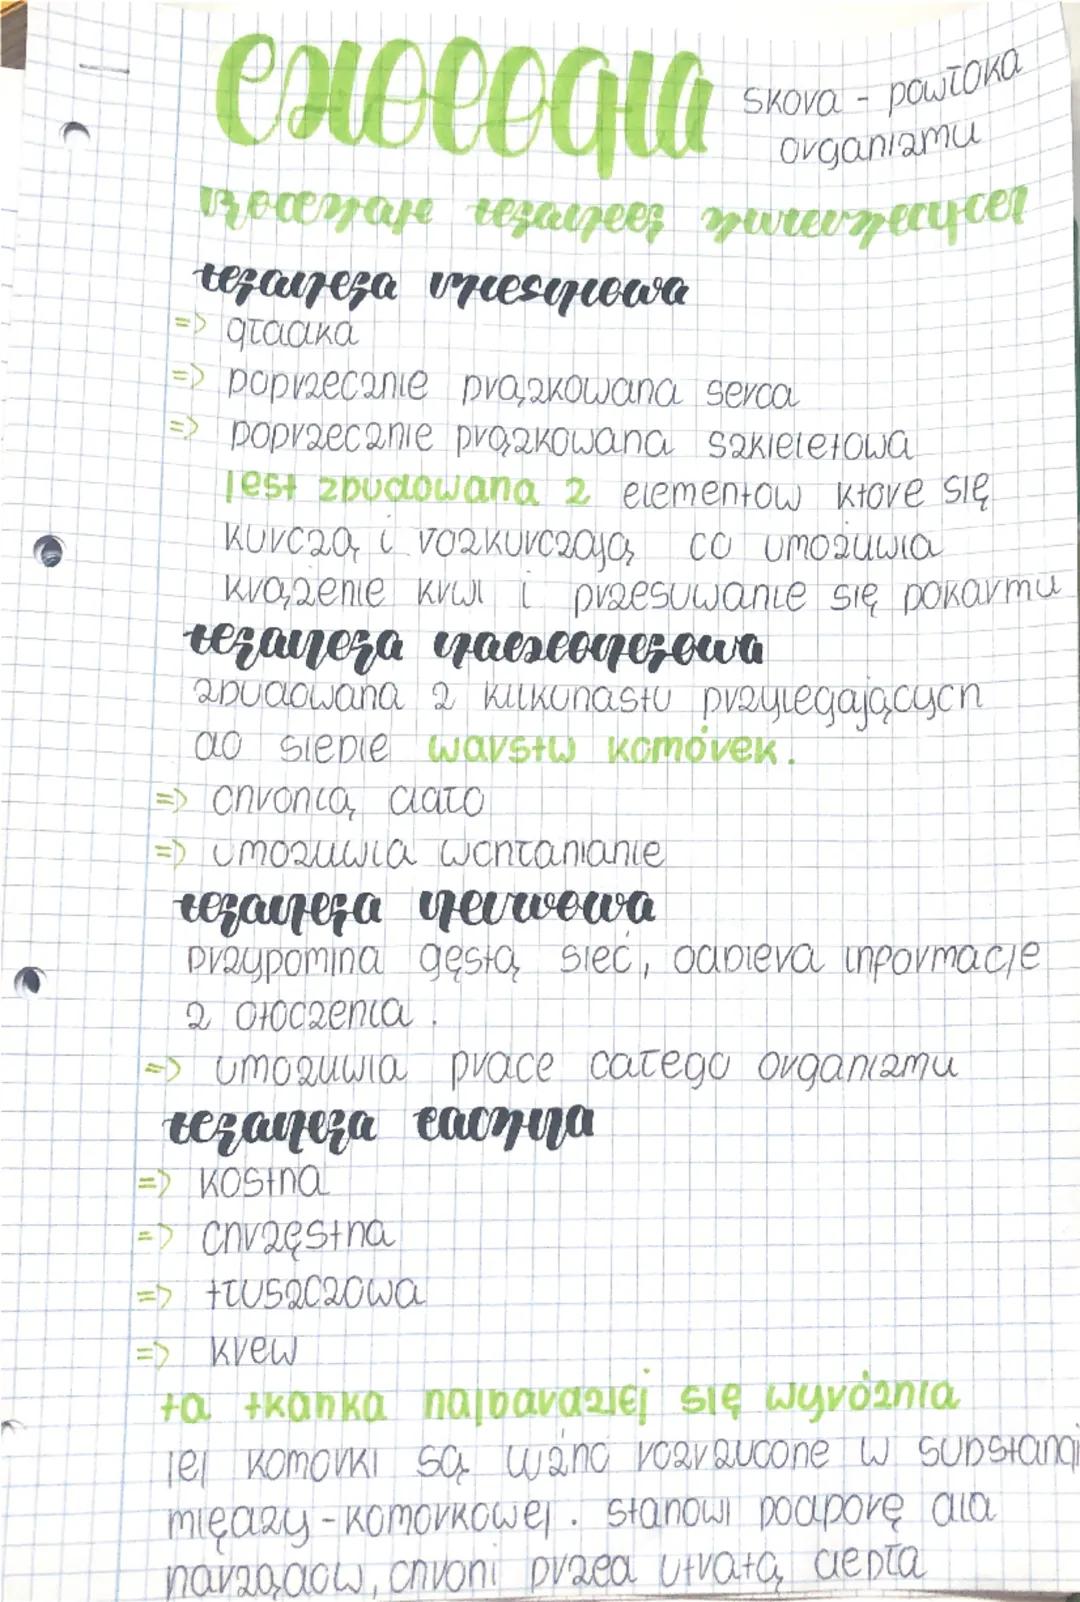 biologia
skóra - powłoka
organizmu
rodzaje tkanek zwierzęcych
tkanka mięśniowa
=> gładka
=> poprzecznie prążkowana serca
=> poprzecznie prążkowana szkieletowa
jest zbudowana z elementów które się
kurczą i rozkurczają co umożliwia
krążenie krwi i przesuwanie się pokarmu
tkanka nabłonkowa
zbudowana z kilkunastu przylegających
do siebie warstw komórek.
=> chronią ciało
=> umożliwia wchłanianie
tkanka nerwowa
przypomina gęstą sieć, odbiera informacje
z otoczenia.
=> umożliwia prace całego organizmu
tkanka łączna
=> kostna
=> chrzęstna
=> tłuszczowa
=> krew
ta tkanka najbardziej się wyróżnia
jej komórki są luźno rozrzucone w substancji
między-komórkowej. stanowi podporę dla
narządów, chroni przed utratą ciepła